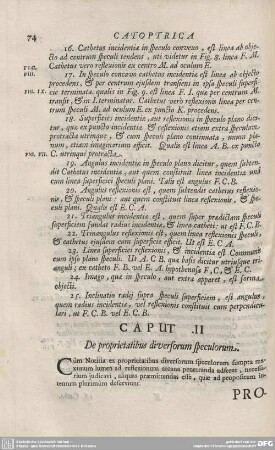 74 CATOPTRICA
16. Cathetus incidentiæ in speculo convexo, est linea ab obje-
cto ad centrum speculi tendens, uti videtur in Fig. 8. linea F. M.
FIG. Cathetus vero reflexionis ex centro M. ad oculum E.
VIII. 17. In speculo concavo cathetus incidentiæ est linea ab objecto
procedens, & per centrum ejusdem transiens in ipsa speculi superfi-
FIG. IX. cie terminata, qualis in Fig. 9. est linea F. I. quæ per centrum M.
transit, & in I. terminatur. Cathetus vero reflexionis linea per cen-
trum speculi M. ad oculum E. ex puncto K. procedens.
18. Superficies incidentiæ, aut reflexionis in speculo plano dici-
tur, quæ ex puncto incidentiæ & reflexionis etiam extra speculum
protracta utrinque, & cum speculi plano continuata, unum pla-
num, etiam imaginarium efficit. Qualis est linea A. B. ex puncto
FIG. VII. C. utrinque protracta.
19. Angulus incidentiæ in speculo plano dicitur, quem subten-
dit Cathetus incidentiæ, aut quem constituit linea incidentiæ und
cum linea superficiei speculi plani. Talis est angulus F. C. B.
20. Angulus reflexionis est, quem subtendit cathetus reflexio-
nis, & speculi plani: aut quem constituit linea reflexionis, & spe-
culi plani. Qualis est E. C. A.
21. Triangulus incidentiæ est, quem super prædictam speculi
superficiem fundat radius incidentiæ, & linea catheti: ut est F. C. B.
22. Triangulus reflexionis est, quem linea reflexionis speculi,
& cathetus ejusdem cum superficie efficit. Ut est E. C. A.
23. Linea superficiei reflexionis, & incidentiæ est Communis
cum ipso plano speculi. Ut A. C. B. quæ basis dicitur utriusque tri-
anguli; ex catheto F. B. vel E. A. hypothenusa F, C, & E. C.
24. Imago, quæ in speculo, aut extra apparet, est forma
objecti.
25. Inclinatio radii supra speculi superficiem, est angulus,
quem radius incidentiæ, vel reflexionis constituit cum perpendicu-
lari, ut F. C. B. vel E. C. B.
CAPUT .II
De proprietatibus diversorum speculorum.
Cùm Notitia ex proprietatibus diversorum speculorum sumpta ma-
ximum lumen ad reflexionum sectas protrahendas adferat, necessa-
rium judicavi, aliquas præmittendas esse, quæ ad propositum in-
tentum plurimùm deserviunt.
PRO-